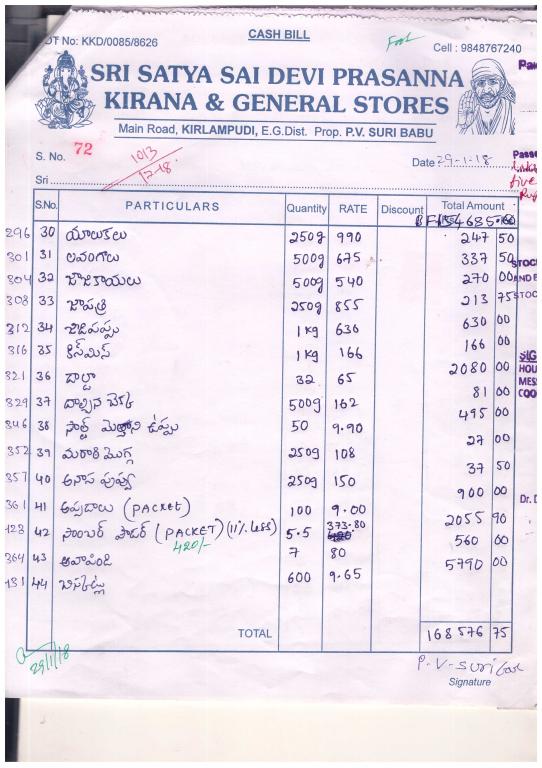 CASH BILL
OT No: KKD/0085/8626
Cell : 9848767240
SRI SATYA SAI DEVI PRASANNA
KIRANA & GENERAL STORES
Main Road, KIRLAMPUDI, E.G.Dist. Prop. P.V. SURI BABU
S. No. 72
1013
Date 29-1-18
Sri
S.No. PARTICULARS Quantity RATE Discount Total Amount
296 30 యాలుకలు 250g 990 247 50
301 31 లవంగాలు 500g 675 337 50
304 32 జాజికాయలు 500g 540 270 00
308 33 జాపత్రి 250g 855 213 75
312 34 జీడిపప్పు 1kg 630 630 00
316 35 కిస్‌మిస్ 1kg 166 166 00
321 36 డాల్డా 32 65 2080 00
329 37 దాల్చిన చెక్క 500g 162 81 00
346 38 సాల్ట్ మెత్తని ఉప్పు 50 9.90 495 00
352 39 మరాఠి మొగ్గ 250g 108 27 00
357 40 అనాస పువ్వు 250g 150 37 50
361 41 అప్పడాలు (PACKET) 100 9.00 900 00
428 42 సాంబర్ పౌడర్ (PACKET) (11% less) 5.5 373.80 2055 90
420/-
364 43 ఆవాపిండి 7 80 560 00
431 44 బిస్కట్లు 600 9.65 5790 00
TOTAL 168576 75
29/1/18
Signature